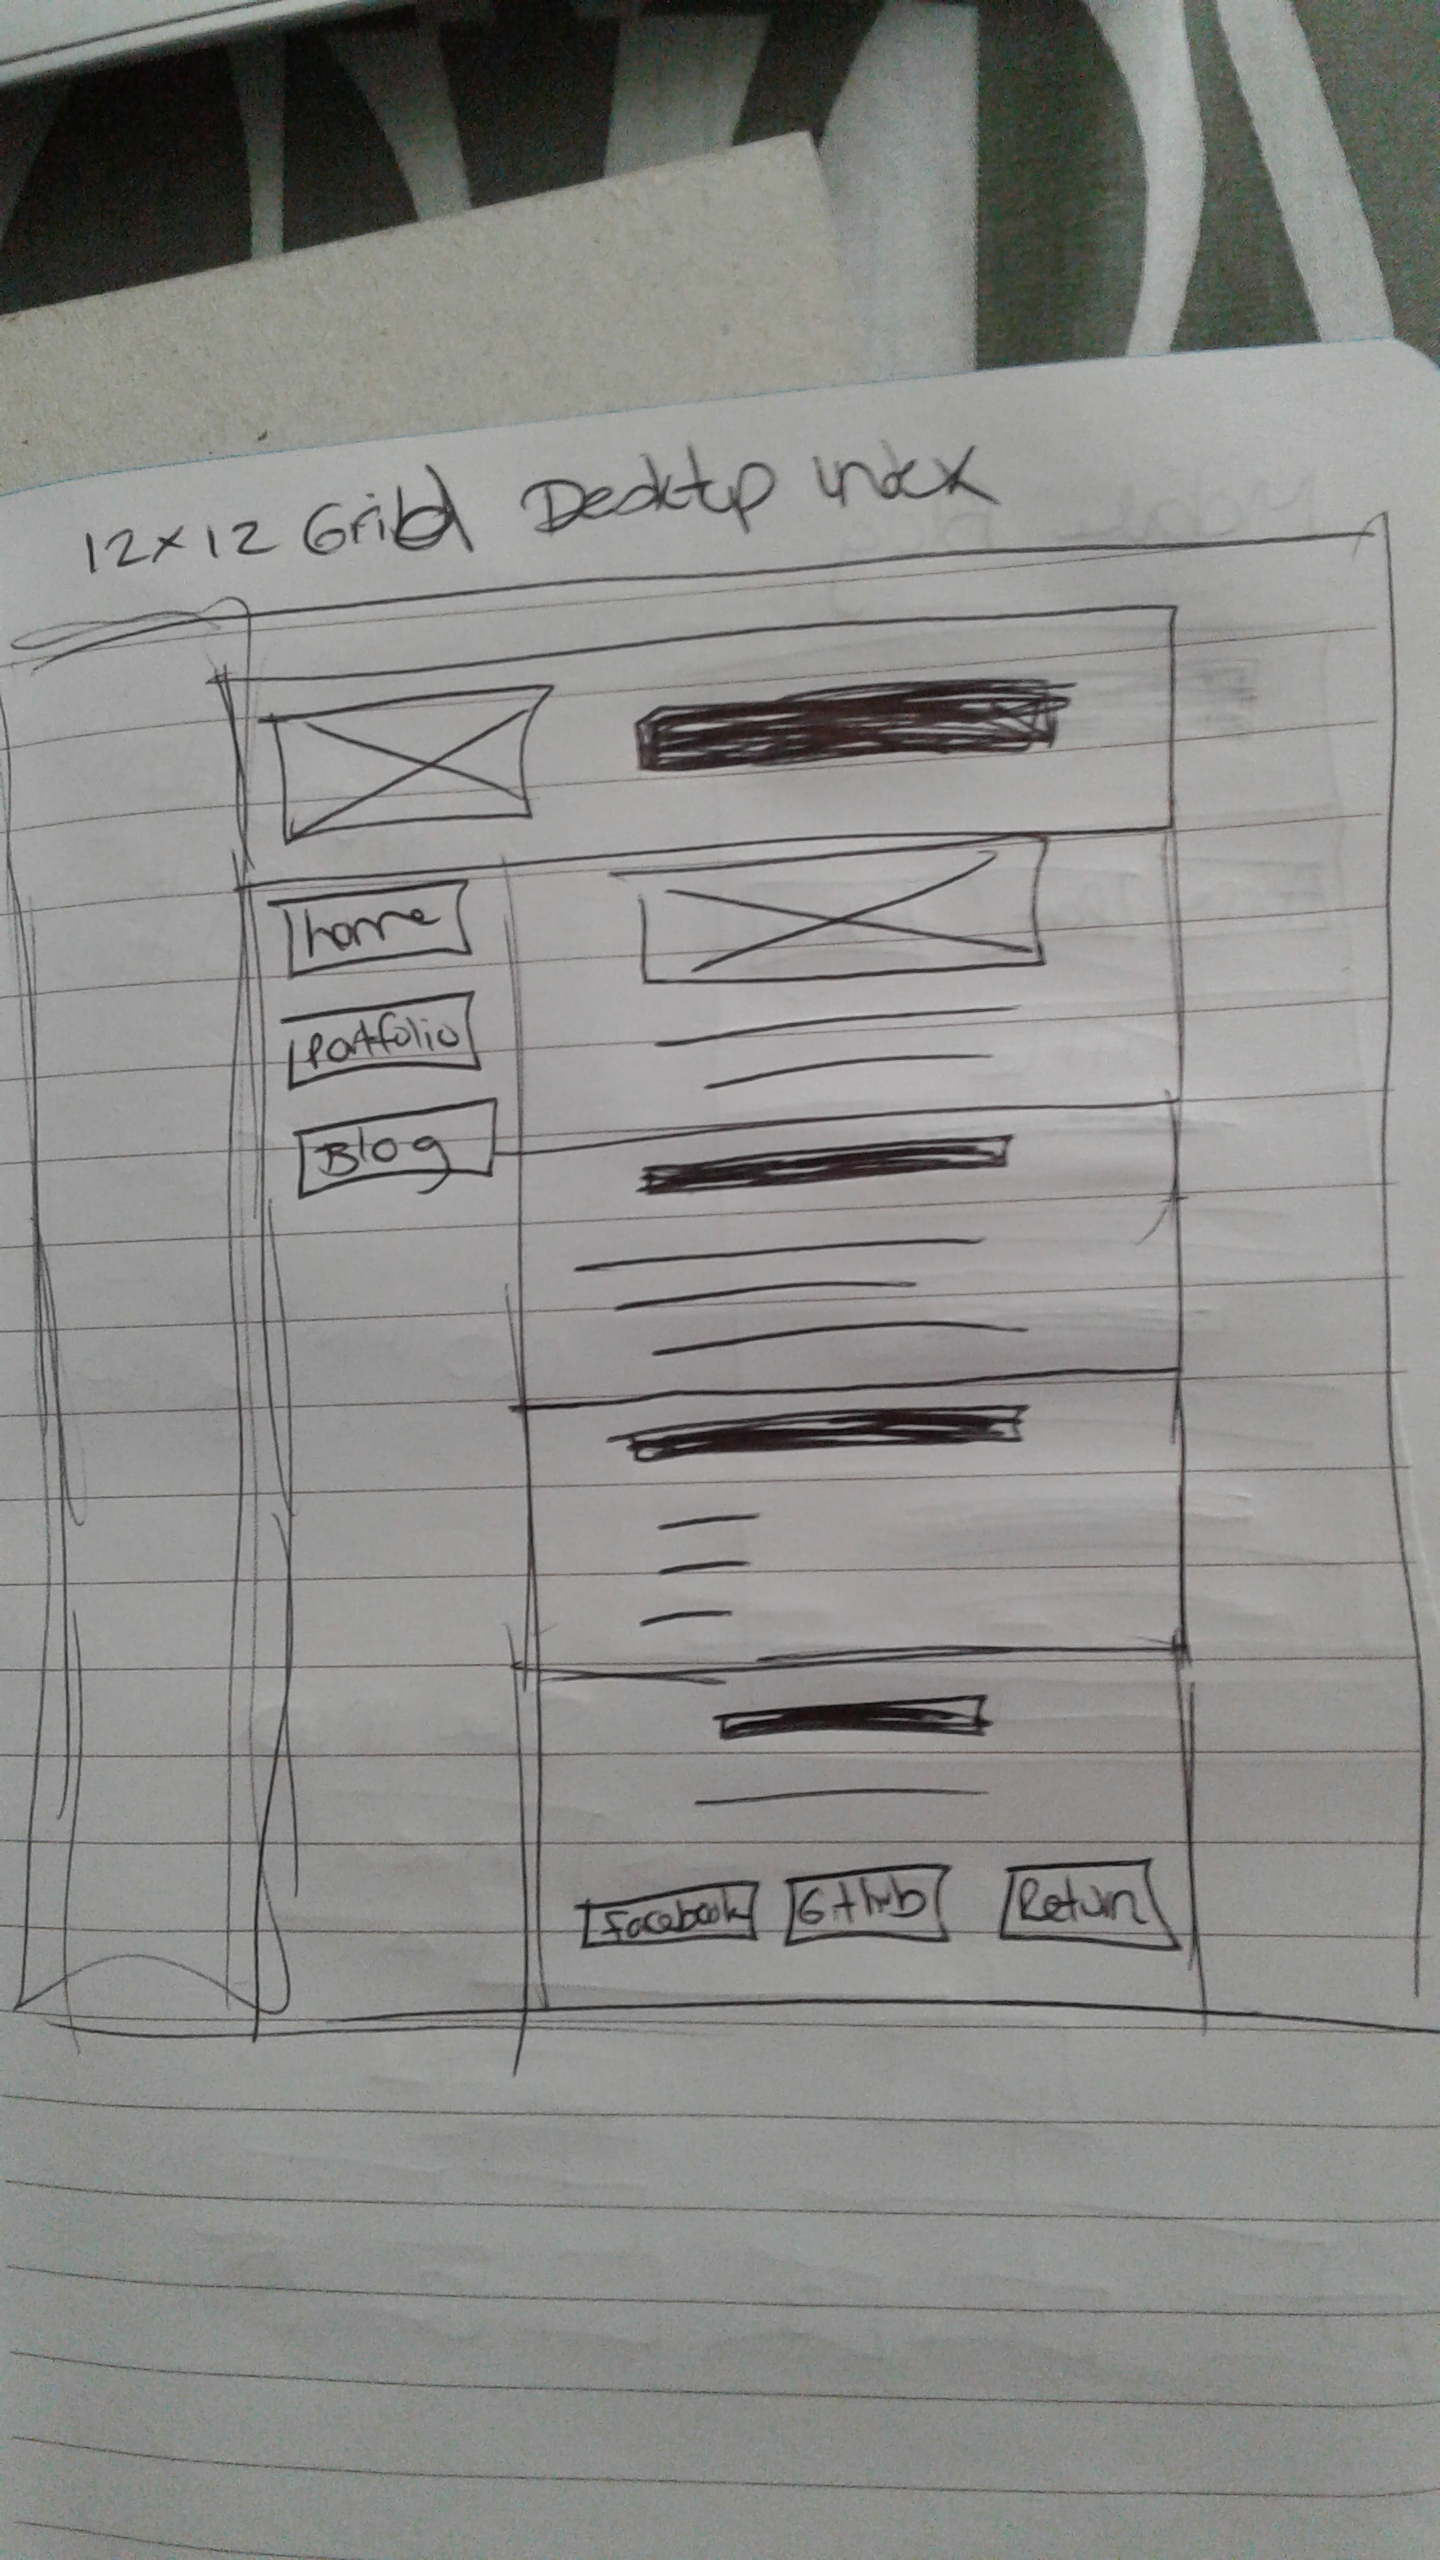 12x12 Grid Desktop index
home
Portfolio
Blog
Facebook Github Return